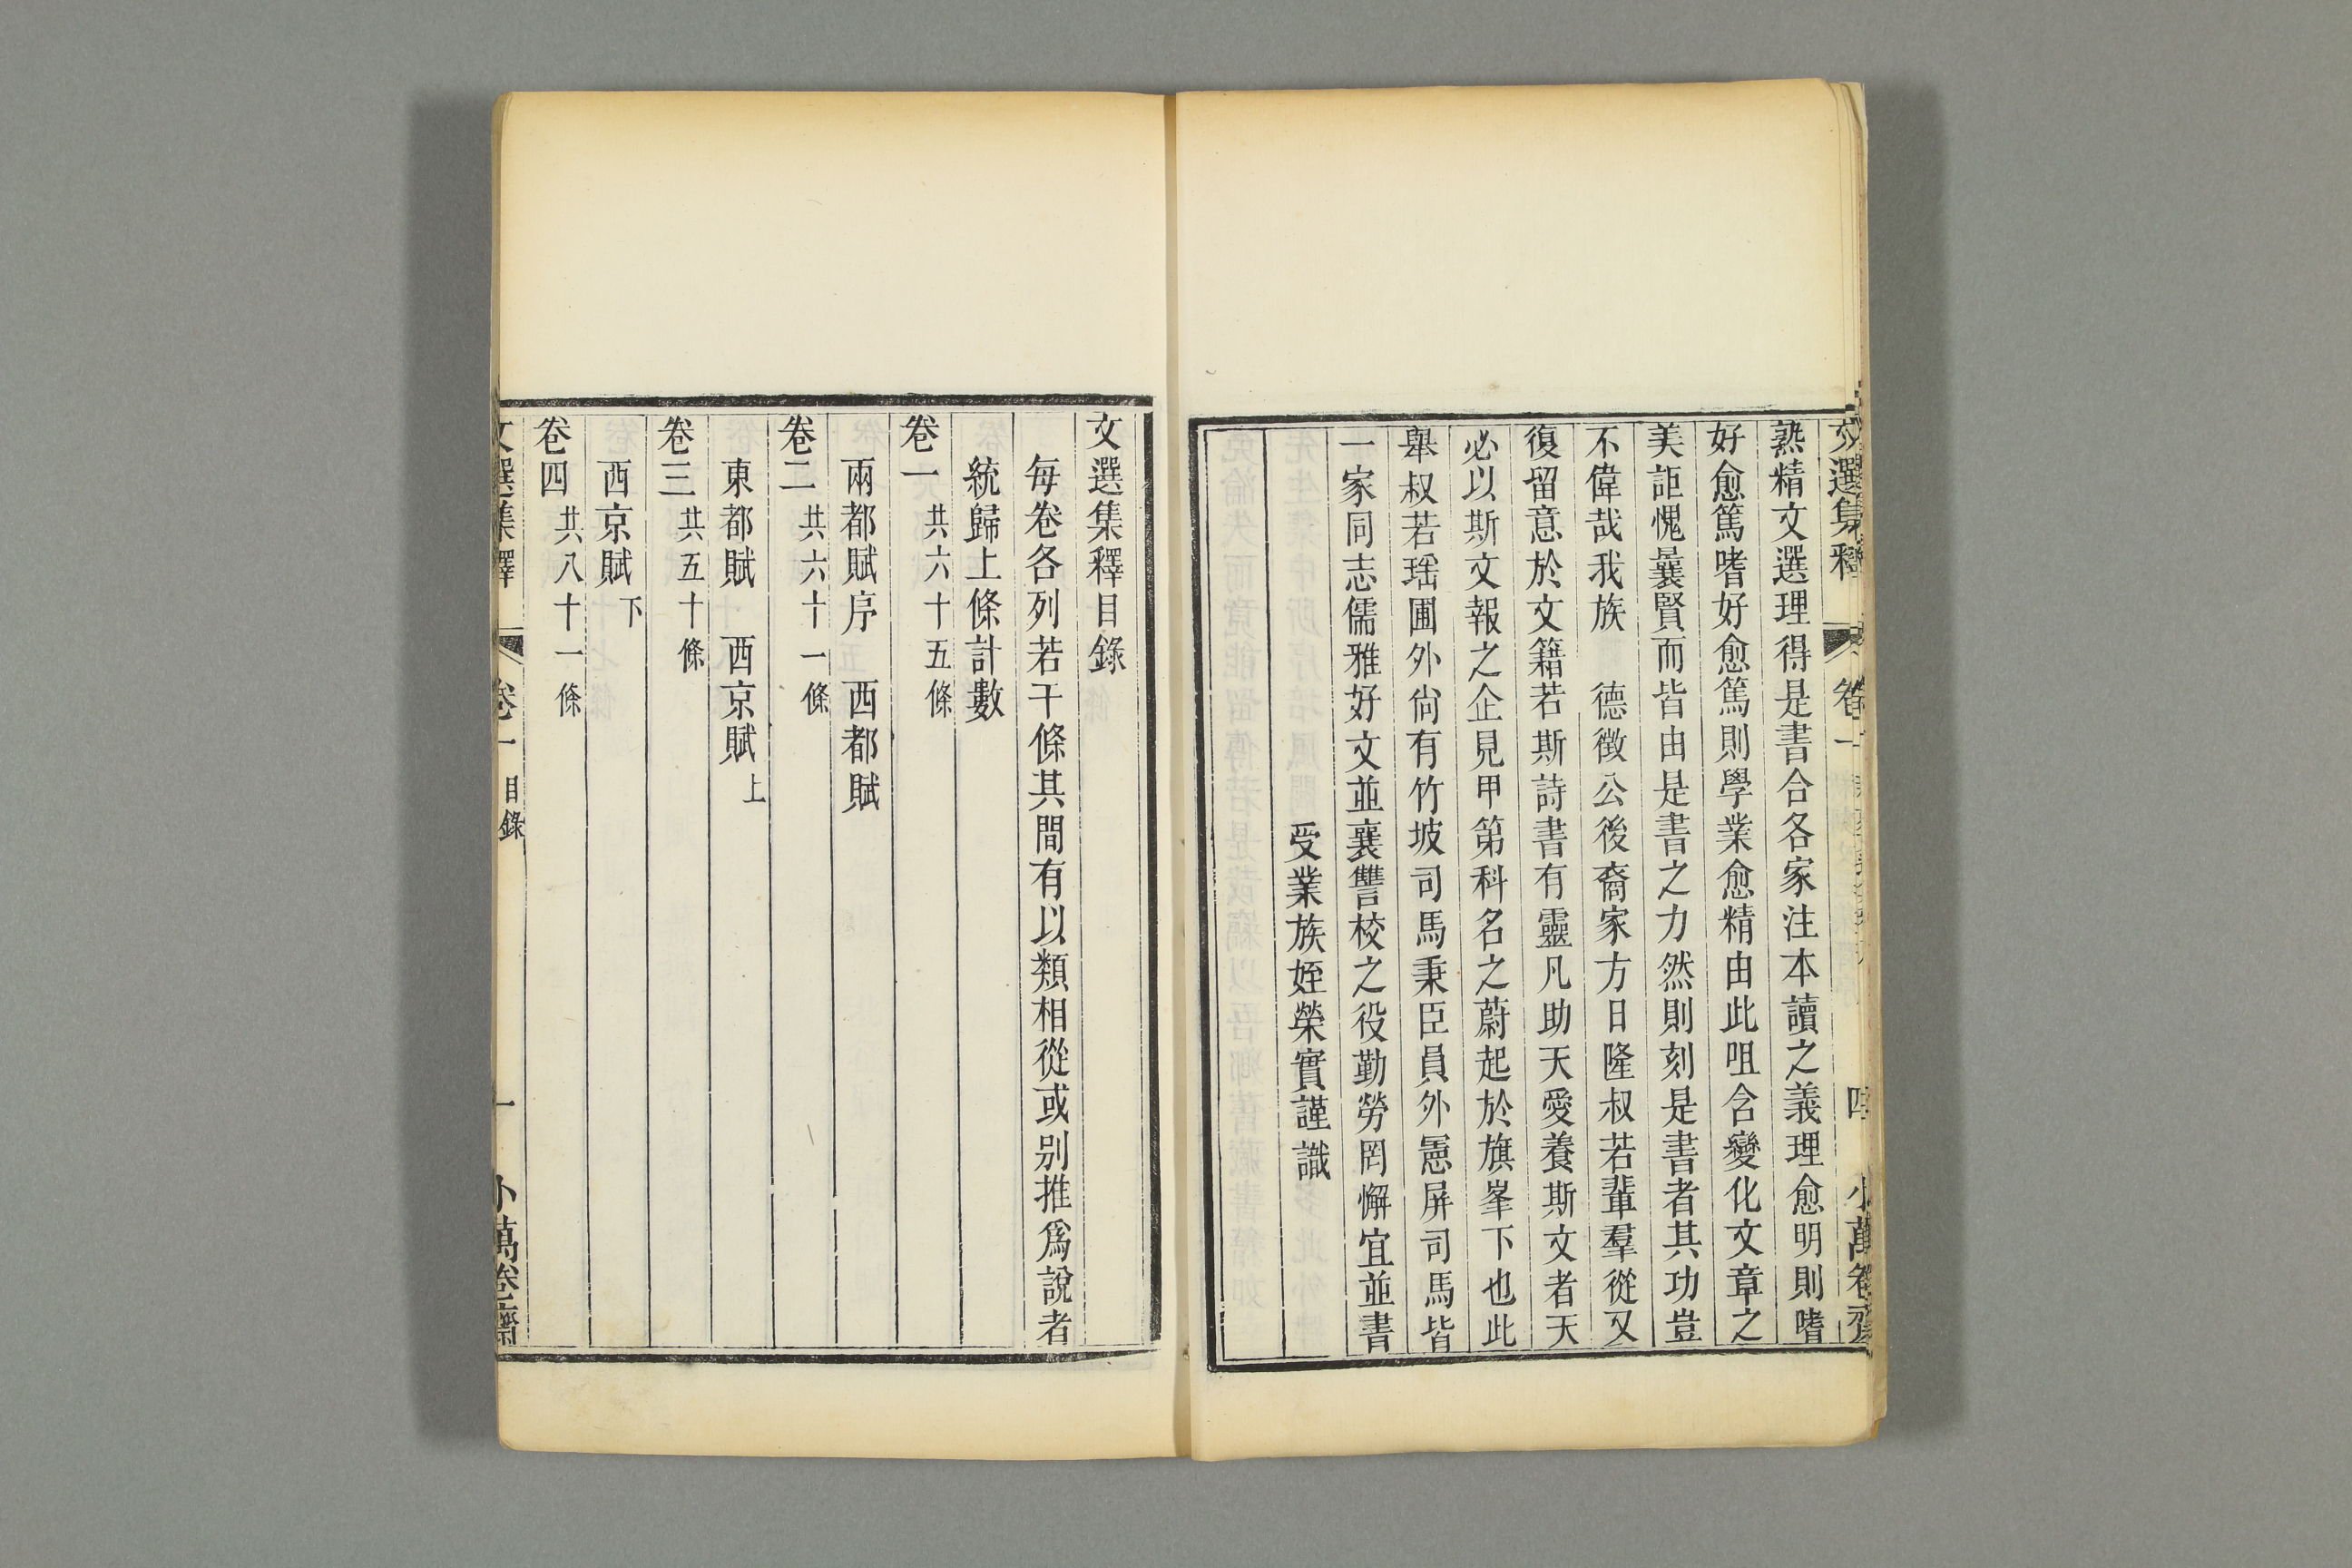 文選集釋 卷一 四 小萬卷齋
熟精文選理得是書合各家注本讀之義理愈明則嗜
好愈篤嗜好愈篤則學業愈精由此咀含變化文章之
美詎愧曩賢而皆由是書之力然則刻是書者其功豈
不偉哉我族 德徵公後裔家方日隆叔若輩羣從又
復留意於文籍若斯詩書有靈凡助天愛養斯文者天
必以斯文報之企見甲第科名之蔚起於旗峯下也此
舉叔若瑶圃外尙有竹坡司馬秉臣員外憲屏司馬皆
一家同志儒雅好文並襄讐校之役勤勞罔懈宜並書
受業族姪榮實謹識
文選集釋目錄
每卷各列若干條其間有以類相從或别推爲說者
統歸上條計數
卷一 共六十五條
兩都賦序 西都賦
卷二 共六十一條
東都賦 西京賦上
卷三 共五十條
西京賦下
卷四 共八十一條
文選集釋 卷一 目錄 一 小萬卷齋